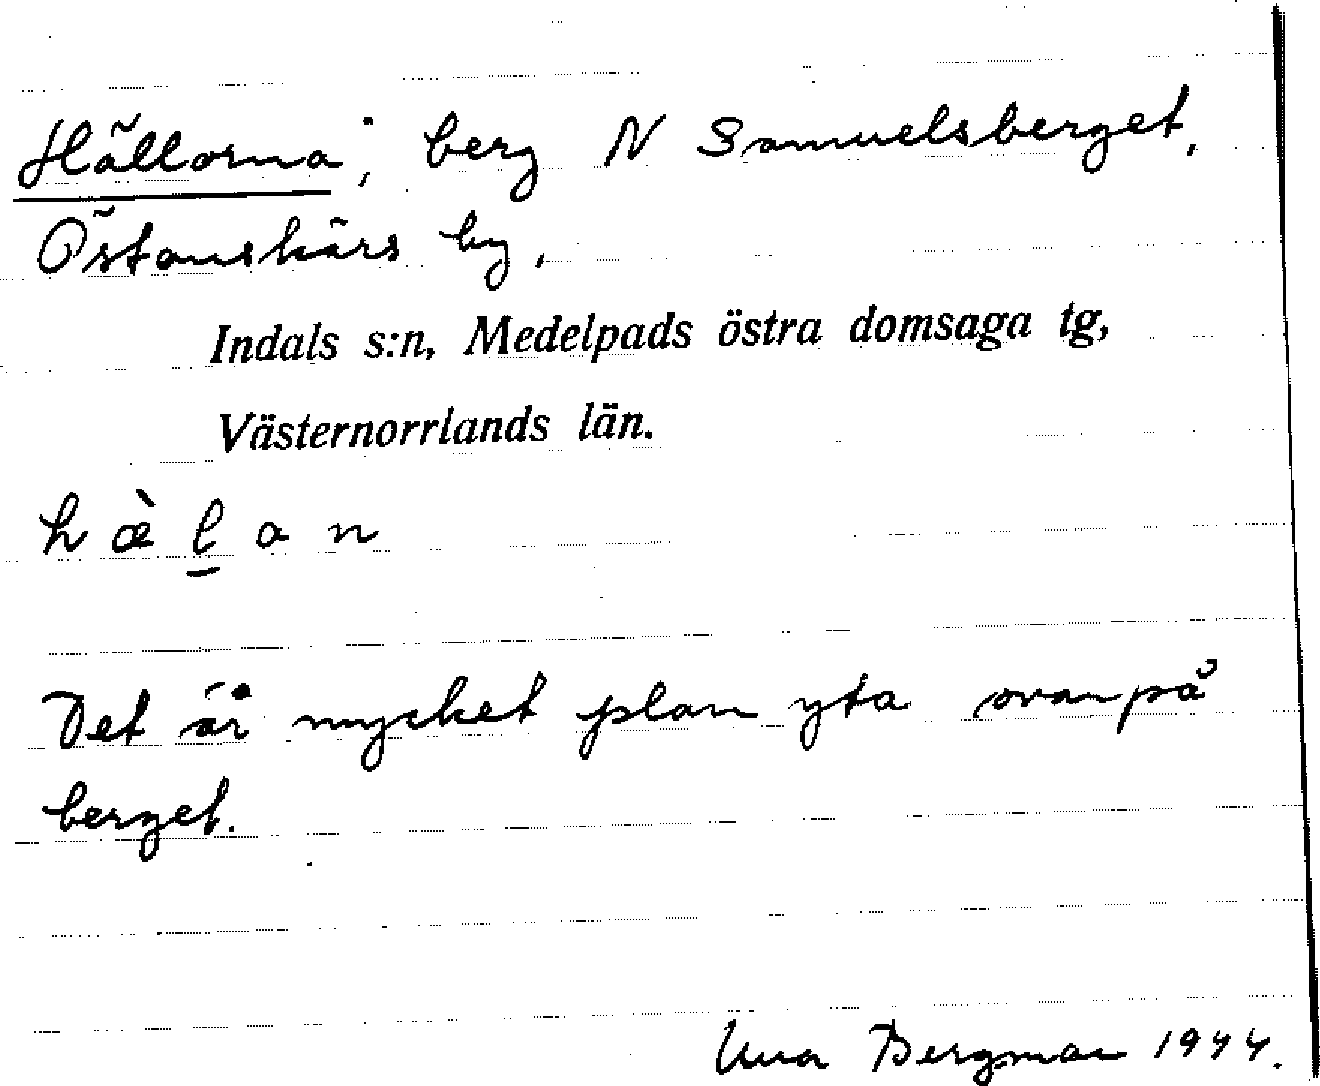 Hällorna; berg N Samuelsberget,
Östanskärs by,
Indals s:n, Medelpads östra domsaga tg,
Västernorrlands län.
h æ̀ l̲ a n
Det är mycket plan yta ovanpå
berget.
Una Bergman 1944.